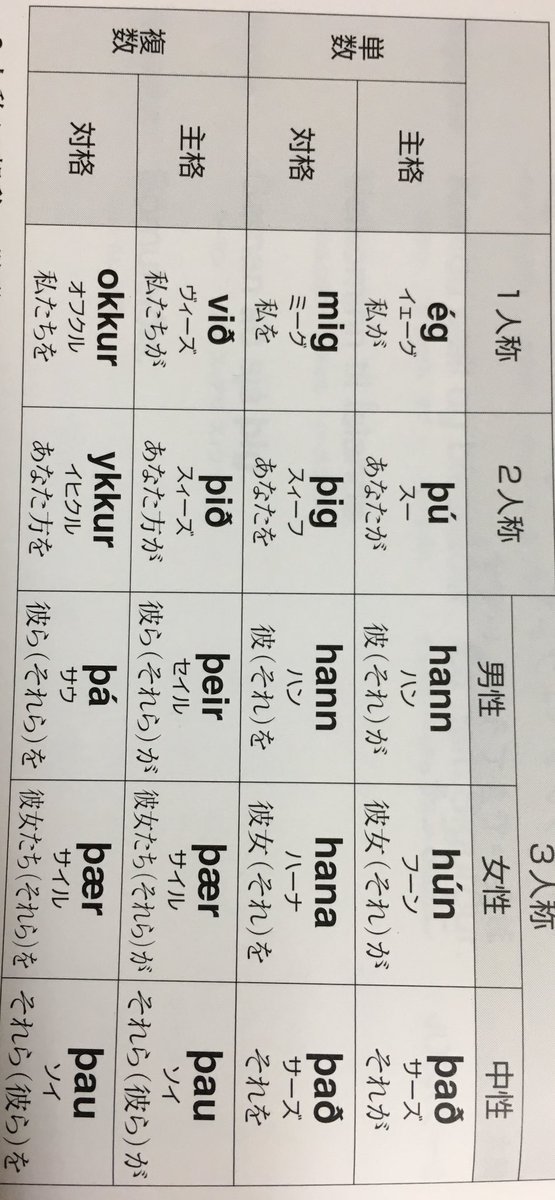 1人称
2人称
3人称
男性
女性
中性
単数
主格
ég
イェーグ
私が
þú
スー
あなたが
hann
ハン
彼(それ)が
hún
フーン
彼女(それ)が
það
サーズ
それが
対格
mig
ミーグ
私を
þig
スィーフ
あなたを
hann
ハン
彼(それ)を
hana
ハーナ
彼女(それ)を
það
サーズ
それを
複数
主格
við
ヴィーズ
私たちが
þið
スィーズ
あなた方が
þeir
セイル
彼ら(それら)が
þær
サイル
彼女たち(それら)が
þau
ソイ
それら(彼ら)が
対格
okkur
オフクル
私たちを
ykkur
イヒクル
あなた方を
þá
サウ
彼ら(それら)を
þær
サイル
彼女たち(それら)を
þau
ソイ
それら(彼ら)を